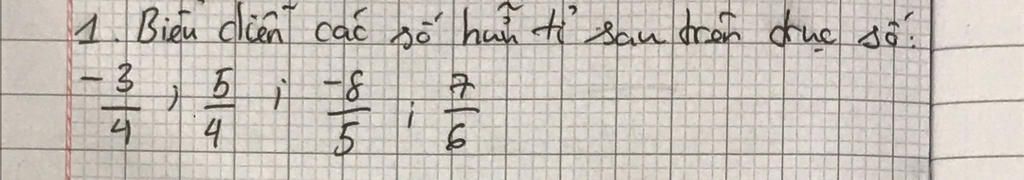 1. Biểu diễn các số hữu tỉ sau trên trục số:
-3/4 ; 5/4 ; -8/5 ; 7/6